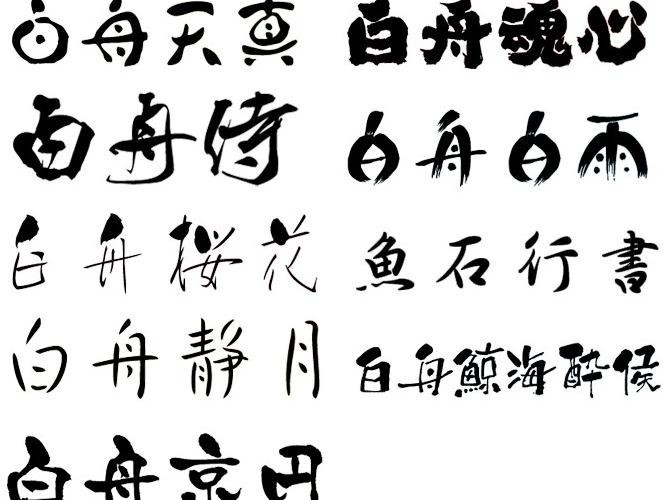 白舟天真
白舟魂心
白舟侍
白舟白雨
白舟桜花
魚石行書
白舟静月
白舟鯨海酔侯
白舟京円